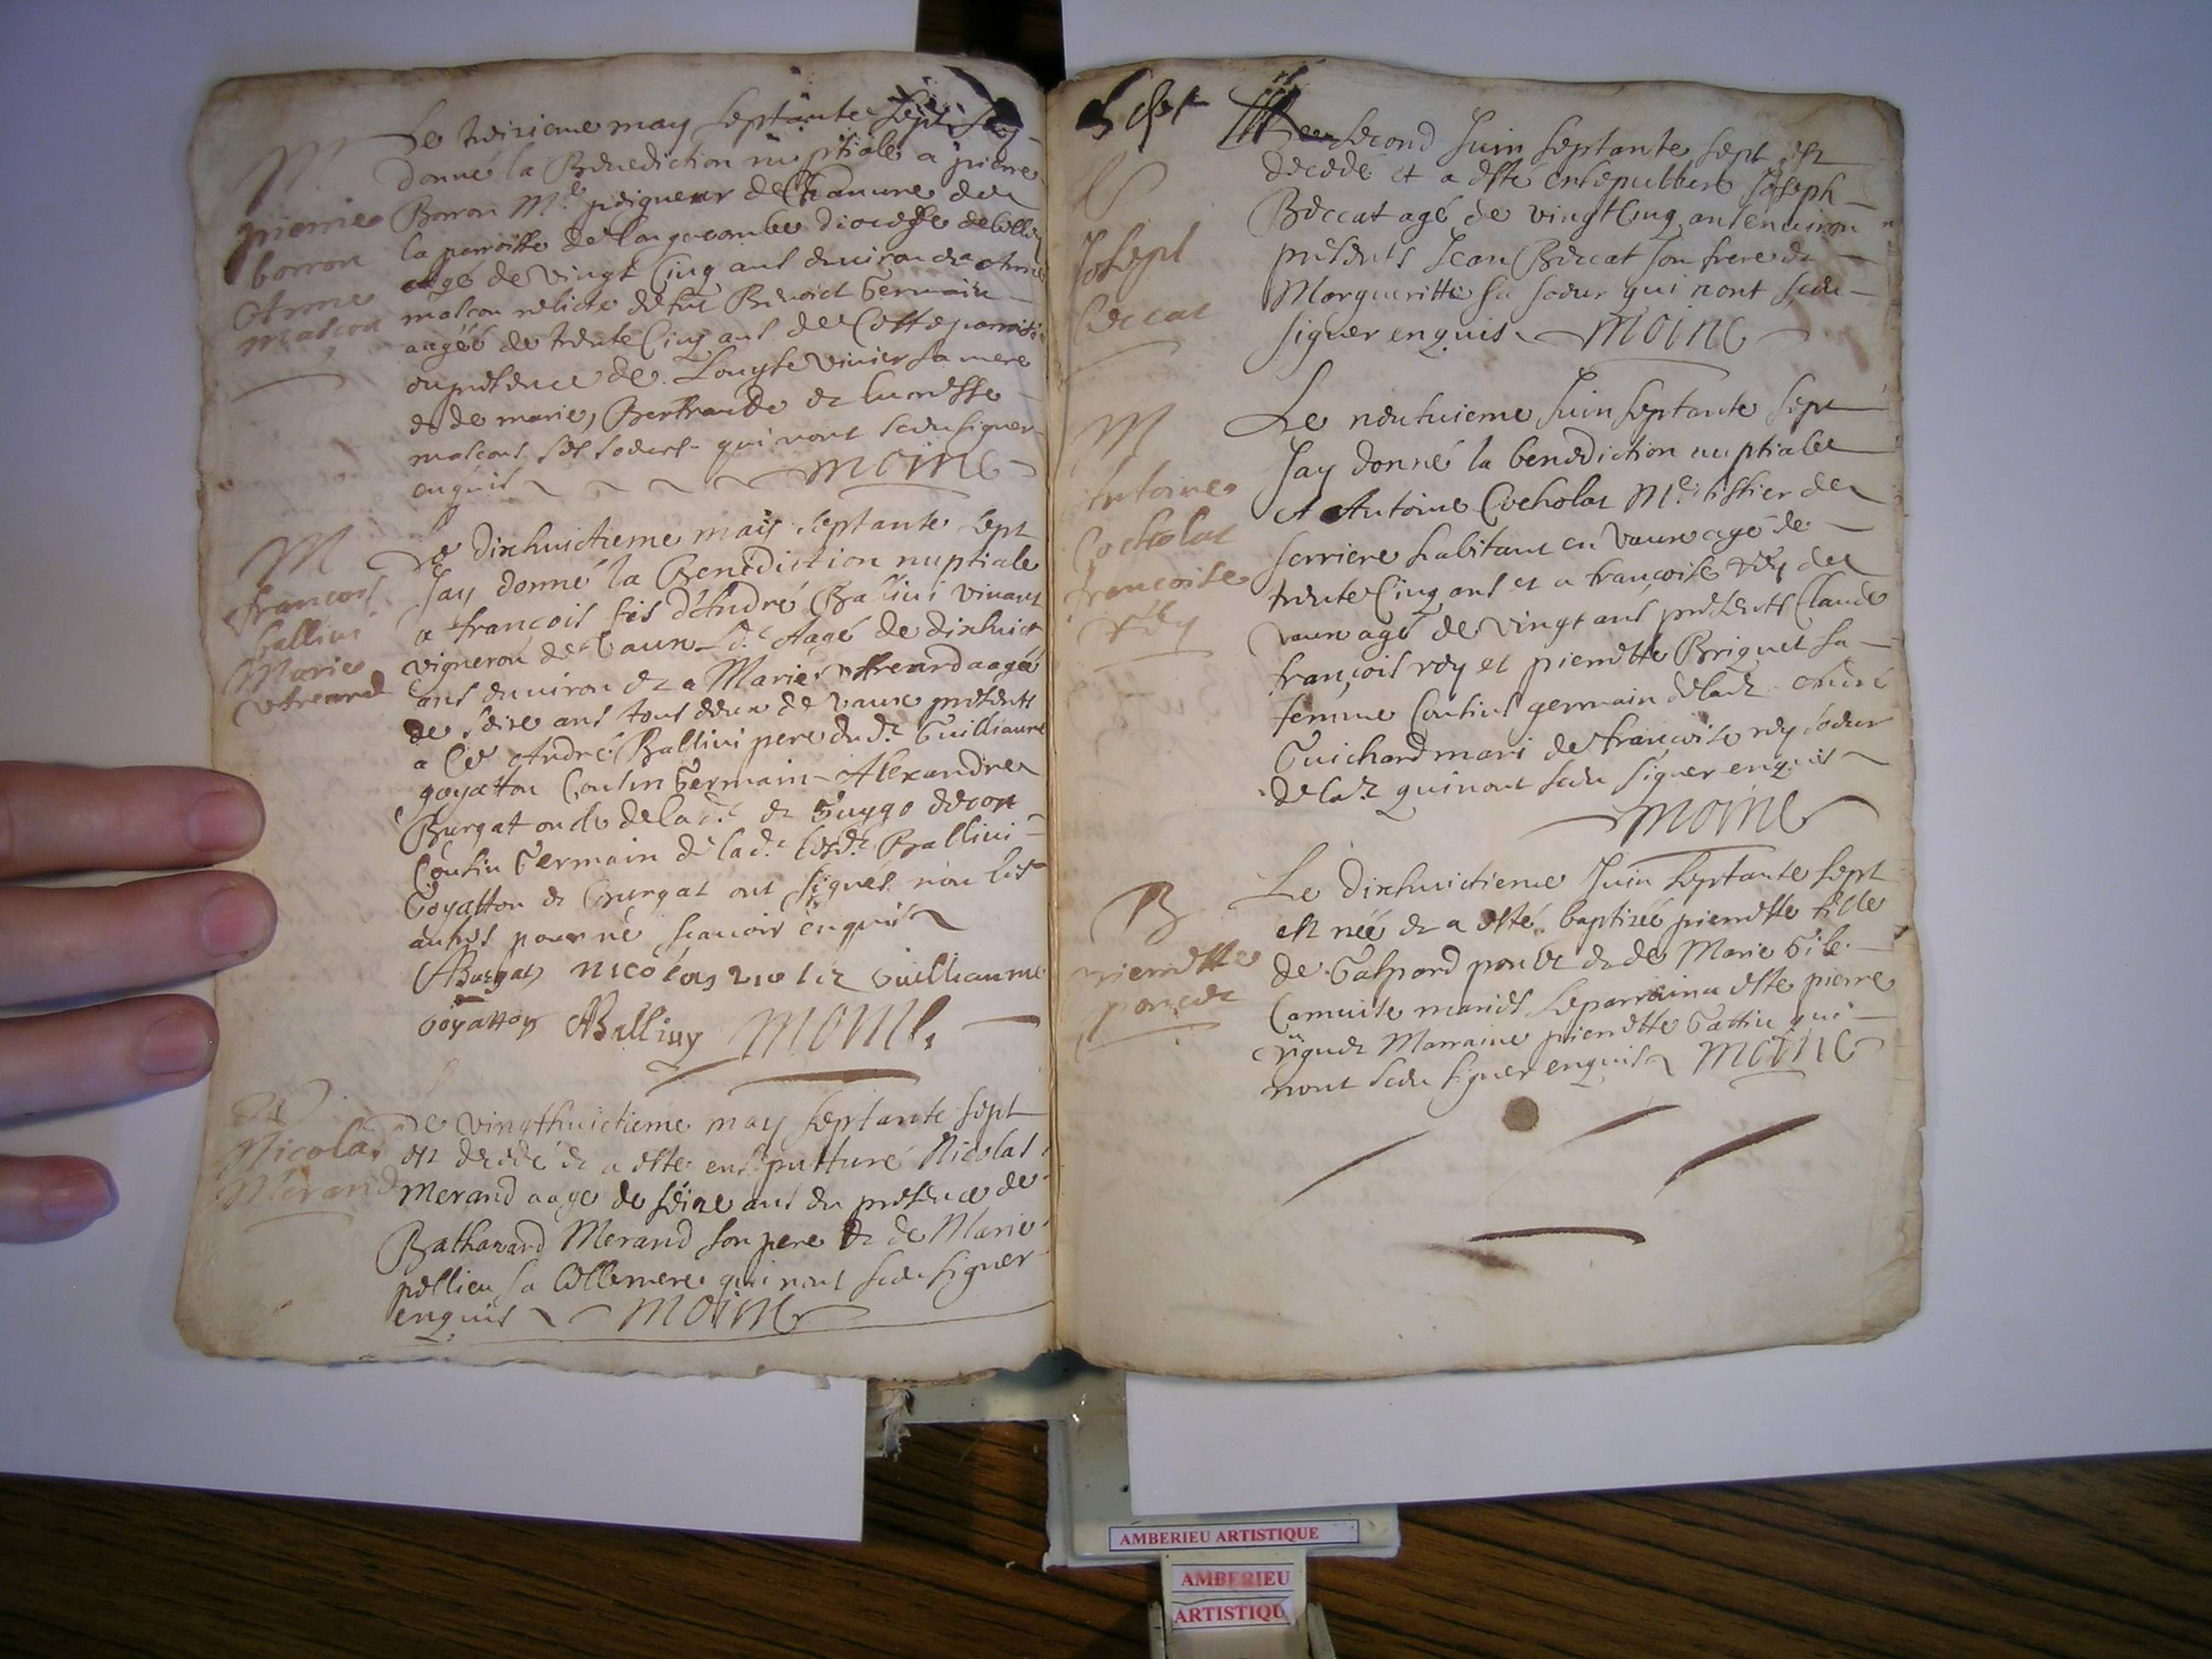 M
pierre
borron
Anne
mascon
Le treizieme may septante sept jay
donné la Benediction nuptiale a pierre
Borron M.e peigneur de Chanvre de
la parroisse de longecombe diocese de belley
aagé de vingt Cinq ans environ et a Anne
mascon relicte de fut Benoict Germain
aagée de trente Cinq ans de Cette parroisse
en presence de Louyse vivier sa mere
et de marie, Bertrande et lucresse
mascons ses soeurs qui nont sceu signer
enquis moine
M
francois
ballivi
Marie
Le dixhuictieme may septante sept
Jay donné la Benediction nuptiale
a francois fis d'André Ballivi vivant
vigneron de Vaux aagé de dixhuict
ans environ et a Marie aagée
de seize ans tous deux de vaux presents
a Ce André Ballivi pere dud.t Guilliaume
goyatton Cousin Germain Alexandre
Burgat oncle de lad.e et Guygo
Cousin Germain de lad.e lesd.ts Ballivi
Goyatton et Burgat ont signés non les
autres pour ne scavoir enquis
ABurgat nicolas Guilliaume
Goyatton ABalliuy moine
Nicolas
Merand
Le vingthuictieme may septante sept
est decedé et a esté ensepulturé Nicolas
Merand aage de seize ans en presence de
Bathazard Merand son pere et de Marie
pellieu sa bellemere qui nont sceu signer
enquis moine
Sept
Joseph
Beccat
Le second Juin septante sept est
decedé et a esté ensepulturé Joseph
Beccat agé de vingt Cinq ans environ
presents Jean Beccat son frere et
Margueritte sa soeur qui nont sceu
signer enquis moine
M
Antoine
Cocholat
francoise
rey
Le neufuieme Juin septante sept
Jay donné la benediction nuptiale
A Antoine Cocholat M.e tissier de
serriere habitant en Vaux agé de
trente Cinq ans et a françoise rey de
vaux agé de vingt ans presents Claude
françois rey et pierrette Briguet sa
femme Cousins germain de lad.e André
Guichard mari de françoise rey soeur
de lad.e qui nont sceu signer enquis
moine
B
pierrette
poncet
Le dixhuictieme Juin septante sept
est née et a esté baptizée pierrette fille
de Gaspard poncet et de Marie
Camuise mariés le parrain a esté pierre
Marraine pierrette Gattin qui
nont sceu signer enquis moine
AMBERIEU ARTISTIQUE
AMBERIEU
ARTISTIQU